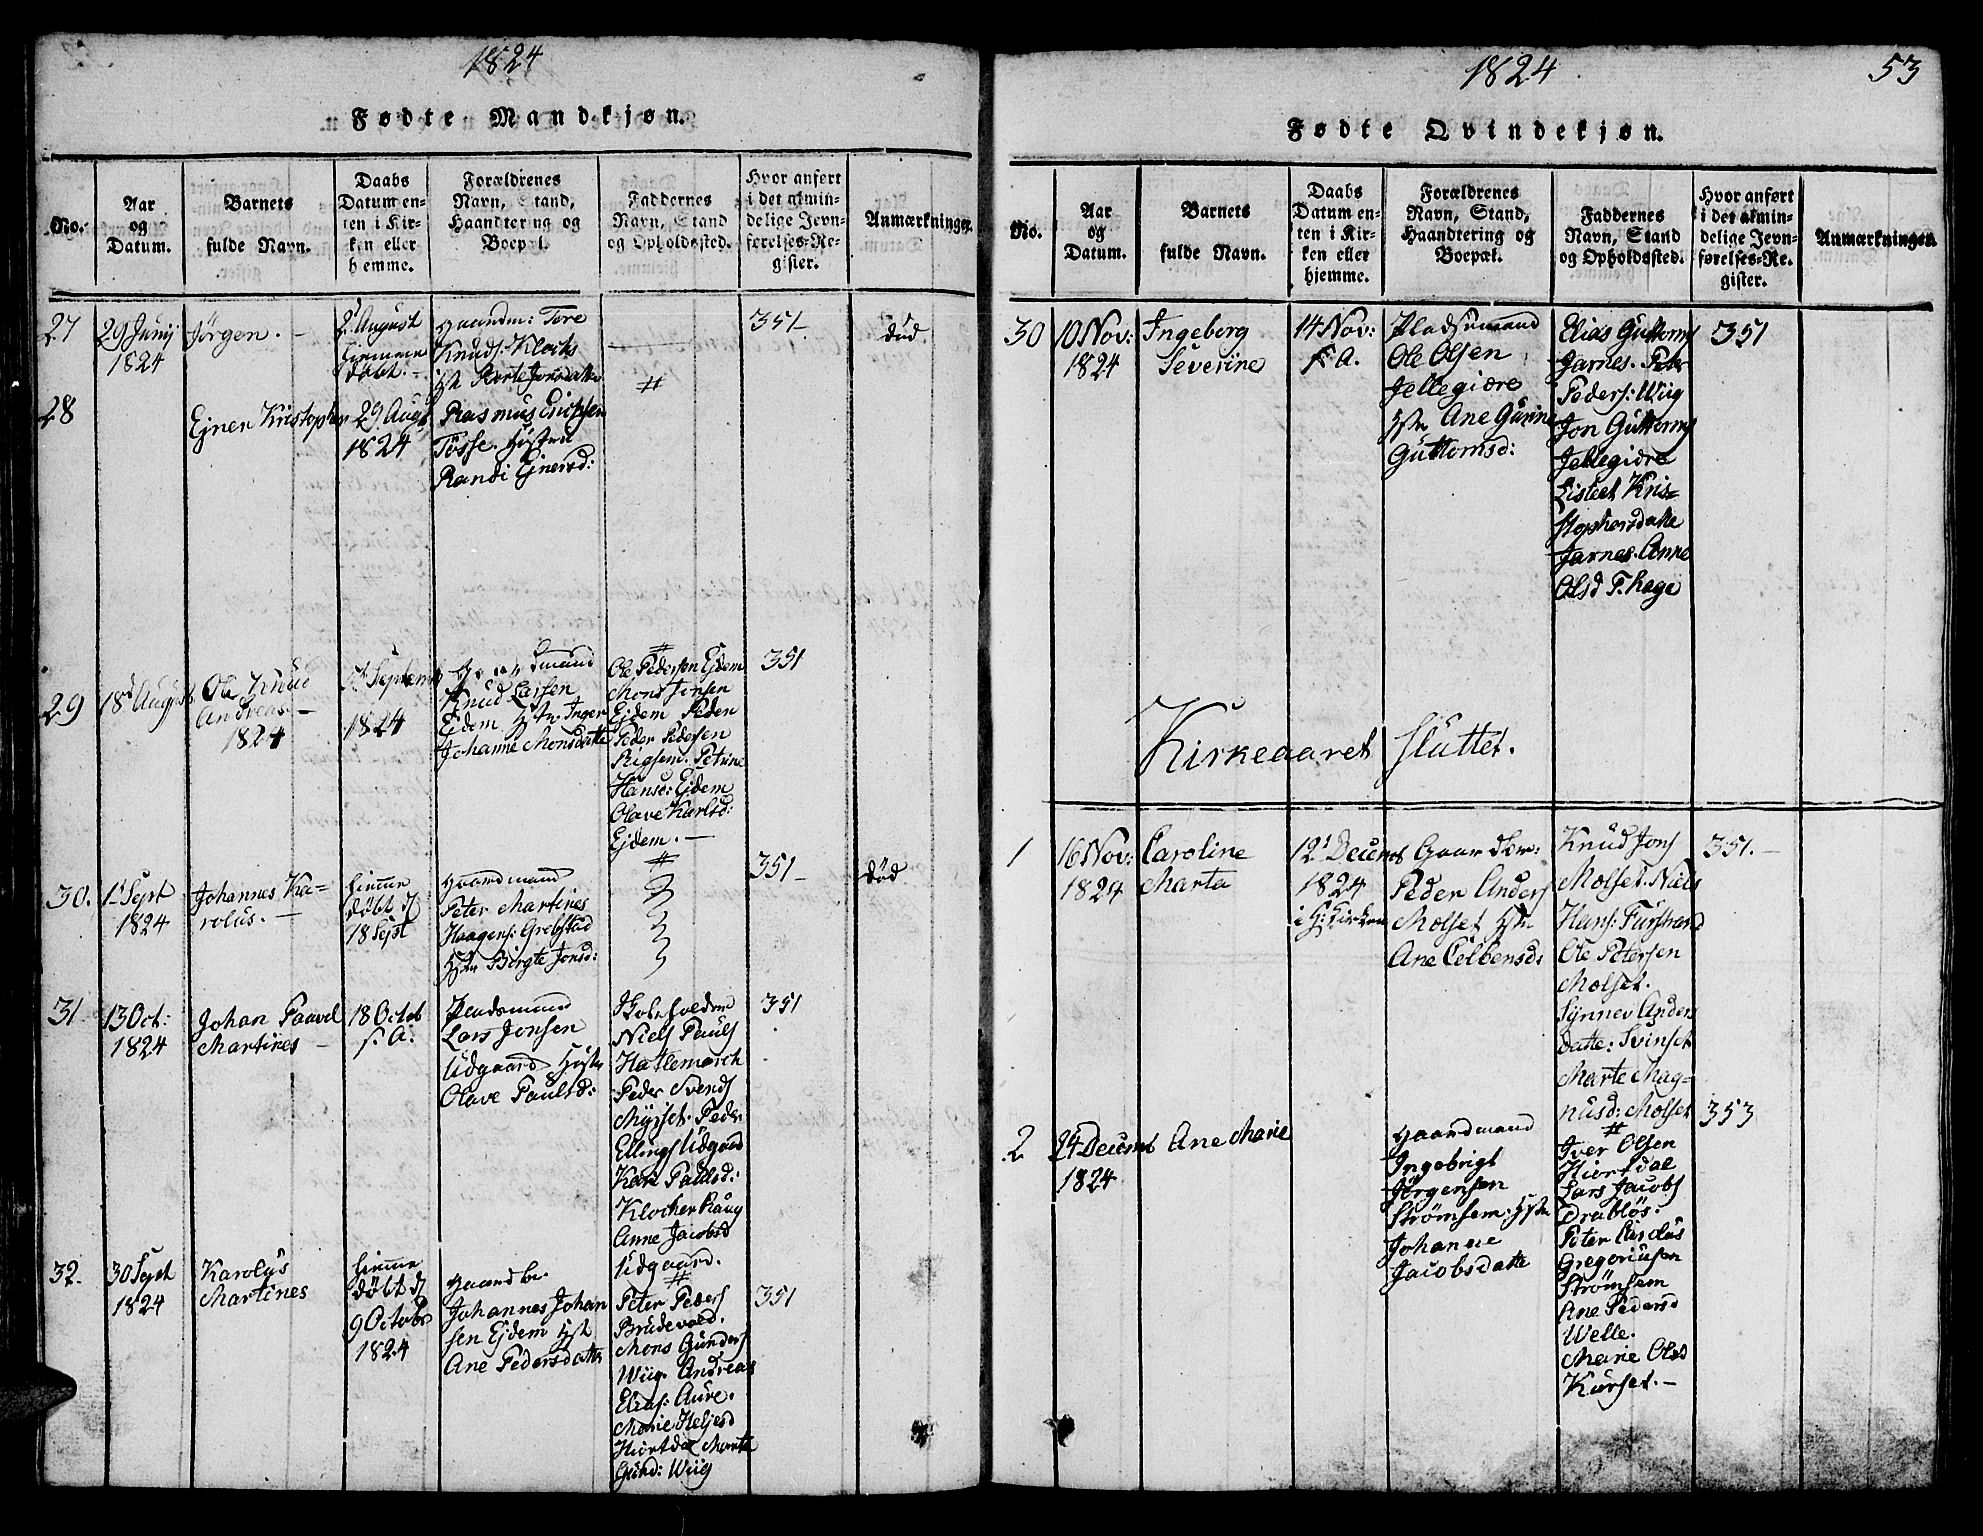 1824
Fødte Mandkjøn.
No.
Aar
og
Datum.
Barnets
fulde Navn.
Daabs
Datum en-
ten i Kir-
ken eller
hjemme.
Forældrenes
Navn, Stand,
Haandtering og
Boepæl.
Faddernes
Navn, Stand
og Opholdssted.
Hvor anført
i det almin-
delige Jevn-
førelses-Re-
gister.
Anmærkninger.
27
29 Junij
1824
Jörgen. —
2 August
hiemme
døbt. —
Gaardm: Tore
Knuds. Klocks
Jonsdatter
#
351-
død
28
Ejner Kristopher
29 Aug
1824
Rasmus Erichsen
Tösse. Hustru
Randi Ejnersd:
29
18d August
Ole Knud
Andreas. —
1824
Septemb
1824
Knud Larsen
Ejdem Hstr. Inger
Johanne Monsdatte
#
Ole Pedersen Ejdem
Mons Jonsen
Ejdem Peder
Peder Pedersen
Rigsem. Petrine
Hansd: Ejdem
Olave Karlsd:
Ejdem. —
351
30.
1 Sept
1824
Johannes Ka-
rolus. —
hiemme
døbt d
18 Sept
Gaardmand
Peter Martines
Haagens: Grebstad
Hstr Birgte Jonsd:
#
351-
død
31
13 Oct:
1824
Johan Paavel
Martines —
18 Octob
s. A:
Pladsmand
Lars Jonsen
Udgaard Hstr
Olave Paulsd:
Niels Pauls
Hatlemarck
Peder Svends
Mysset. Peder
Ellings Udgaard
Kari Paulsd:
Klocker Haug
Anne Jacobsd
Udgaard.
#
351
32.
30 Sept
1824
Karolus
Martines
hiemme
døbt d
9 Octobr
1824
Gaardbr.
Johannes Johan
sen Ejdem Hst
Ane Pedersdatte
Peter Peders
Brudevold.
Mons Gunders
Wiig. Andreas
Elias: Aure.
Marie Heljesd
Hiortdal Marte
Gund: Wiig
351
1824
53
Fødte Qvindekjøn.
No.
Aar
og
Datum.
Barnets
fulde Navn.
Daabs
Datum en-
ten i Kir-
ken eller
hjemme.
Forældrenes
Navn, Stand,
Haandtering og
Boepæl.
Faddernes
Navn, Stand
og Opholdssted.
Hvor anført
i det almin-
delige Jevn-
førelses-Re-
gister.
Anmærkninger.
30
10 Nov:
1824
Ingeborg
Severine
14 Nov:
s. A.
Pladsmand
Ole Olsen
Jellegiære
Hstr Ane Gurine
Guttomsd:
Elias Guttorms
Jarnes. Peter
Peders: Wiig
Jon Guttorms
Jellegiære
Listeet Kris-
stophersdatte
Jarnes. Anne
Olsd T.hage
351
Kirkeaaret sluttet.
1
16 Nov:
1824
Caroline
Marta
12 Decemb
1824
i H: Kirken
Gaardbr:
Peder Anders
Molset Hstr
Ane Eelbensd:
Knud Jons
Molset. Niels
Hans: Furstrand
Ole Petersen
Molset.
Synnev Anders
datte: Svinset
Marte Mag-
nusd: Molset
351. —
2
24 Decemb
1824
Ane Marie
Gaardmand
Ingebrigt
Jörgensen
Strömsem: Hstr
Johanne
Jacobsdatte
#
Iver Olsen
Hiortdal
Lars Jacobs
Drabløs.
Peter Carolus
Gregoriusen
Strömsem
Ane Pedersd
Welle.
Marie Olsd
Kurset. —
353